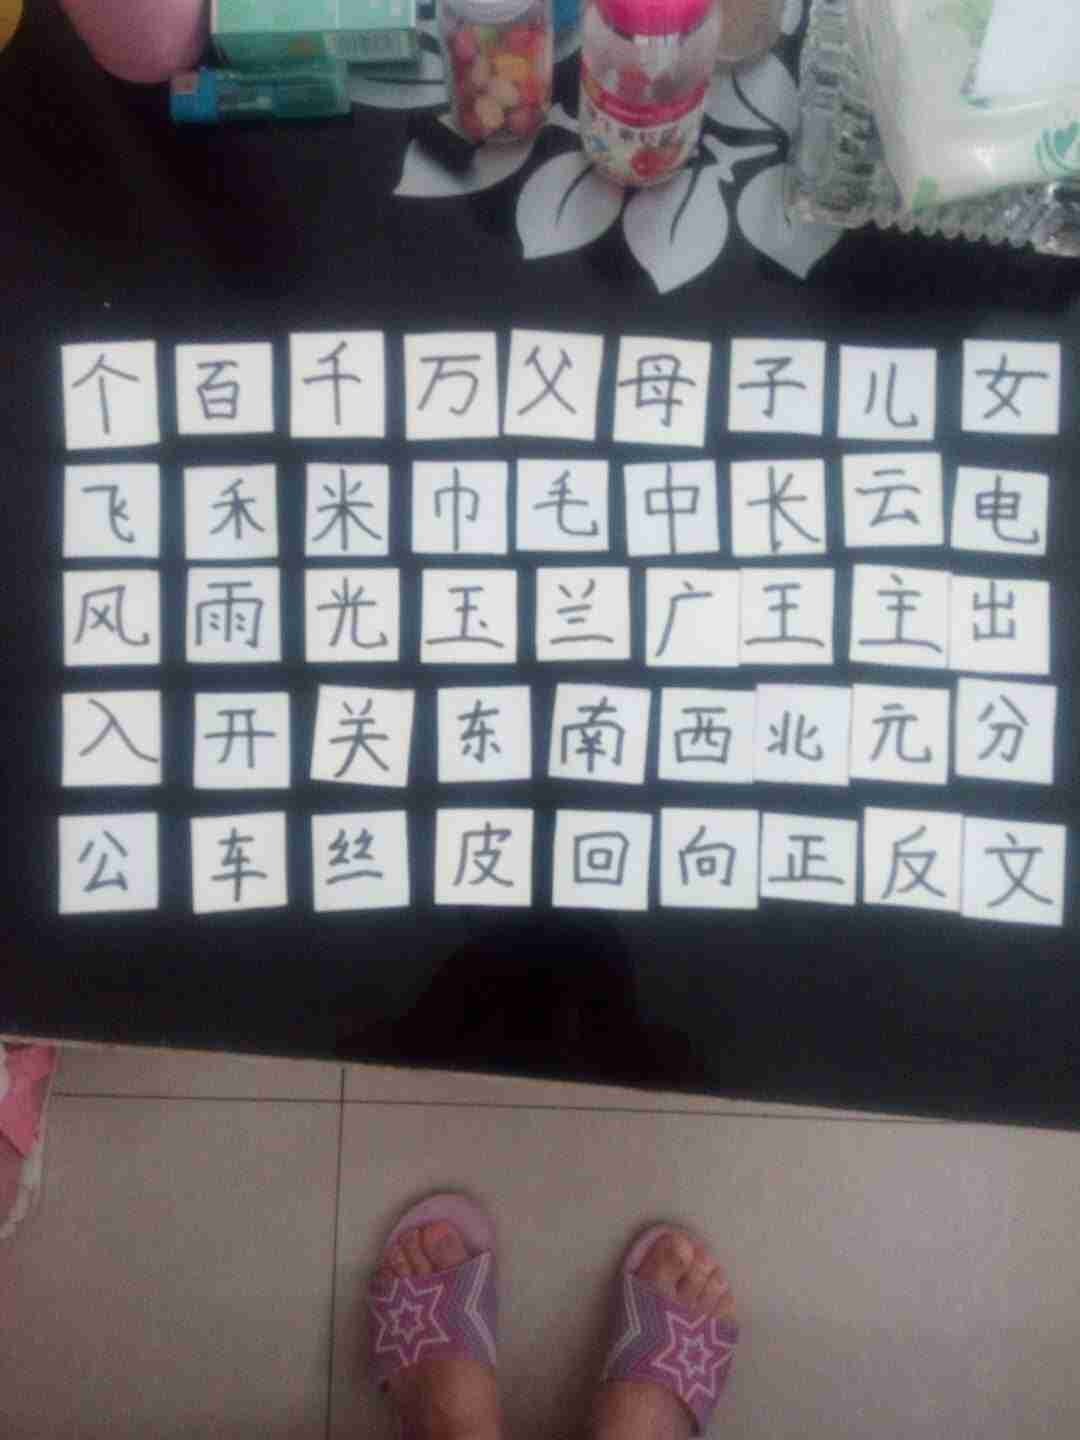 个百千万父母子儿女
飞禾米巾毛中长云电
风雨光玉兰广王主出
入开关东南西北元分
公车丝皮回向正反文